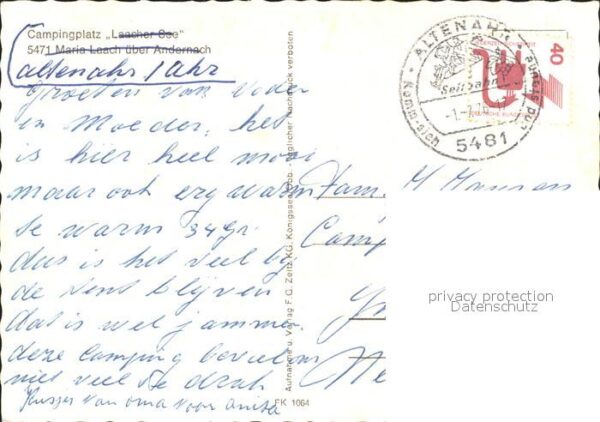 Campingplatz „Laacher See"
5471 Maria Laach über Andernach
altenahr / Ahr
Groeten van Vader
en Moeder, het
is hier heel mooi
maar ook erg warm
te warm 34 gr.
dus is het veel by
de tent blijven
dat is wel jammer
deze camping
niet veel te
Kusjes van oma voor anita
Aufnahme u. Verlag F. G. Zeitz KG, Königssee/Obb. - Jeglicher Nachdruck verboten
FK 1064
ALTENAHR
Seilbahn
5481
40
DEUTSCHE BUNDESPOST
Fam. H
Camp
privacy protection
Datenschutz